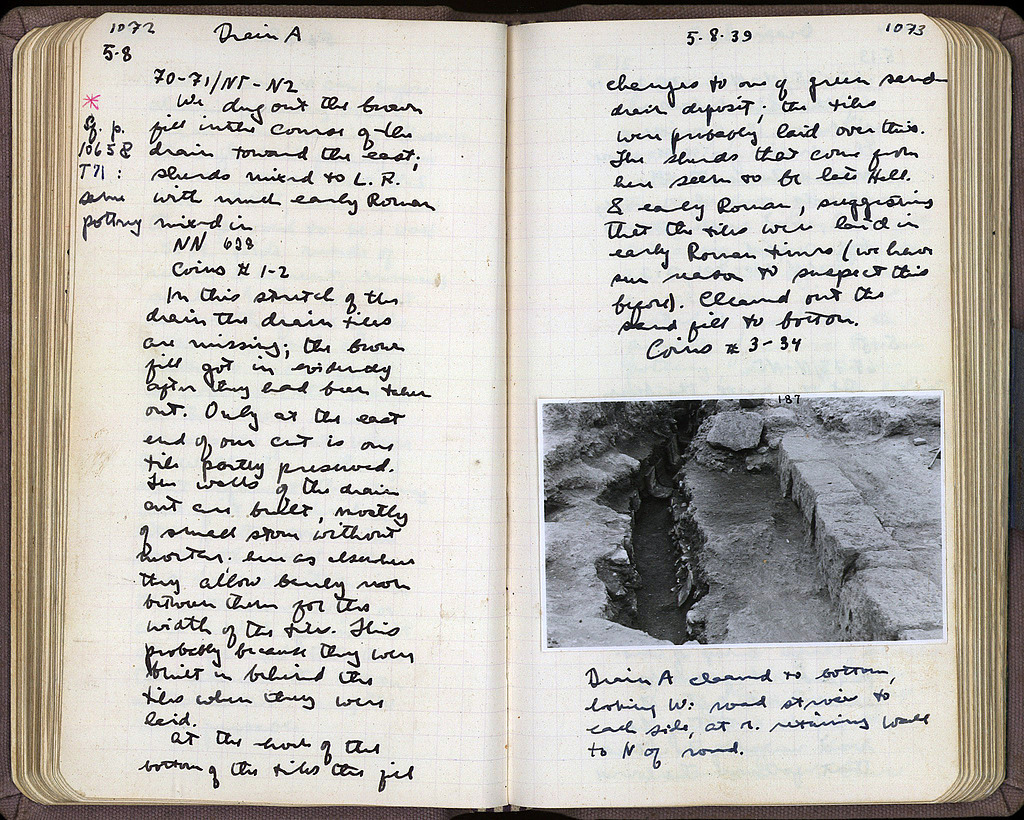 1072
Drain A
5-8
70-71/ΝΓ-ΝΖ
* We dug out the brown
Cf. p. fill in the course of the
1065 & drain toward the east;
T71: sherds mixed to L. R.
same with much early Roman
pottery mixed in
NN 698
Coins # 1-2
In this stretch of the
drain the drain tiles
are missing; the brown
fill got in evidently
after they had been taken
out. Only at the east
end of our cut is one
tile partly preserved.
The walls of the drain
cut are built, mostly
of small stone without
mortar; here as elsewhere
they allow barely room
between them for the
width of the tiles. This
probably because they were
built in behind the
tiles when they were
laid.
At the level of the
bottom of the tiles the fill
5-8-39
1073
changes to one of green sand
drain deposit; the tiles
were probably laid over this.
The sherds that come from
here seem to be late Hell.
& early Roman, suggesting
that the tiles were laid in
early Roman times (we have
seen reason to suspect this
before). Cleaned out the
sand fill to bottom.
Coins # 3-34
187
Drain A cleaned to bottom,
looking W: road strosis to
each side, at r. retaining wall
to N of road.